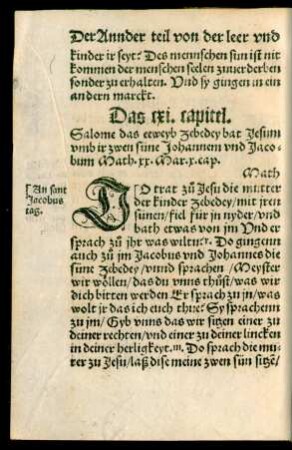 Der Annder teil von der leer vnd
kinder ir seyt: Des mennschen sun ist nit
kommen der menschen seelen zuuerderben
sonder zu erhalten. Vnd sy gingen in ein
andern marckt.
Das lxi. capitel.
Salome das eeweyb Zebedey bat Jesum
vmb ir zwen süne Johannem vnd Jaco-
bum Math. xx. Mar. x. cap.
Math
An sant
Jacobus
tag.
DO trat zů Jesu die mutter
der kinder Zebedey/ mit jren
sünen/ fiel für jn nyder/ vnd
bath etwas von jm Vnd er
sprach zů jhr was wiltu: Do gingenn
auch zů jm Jacobus vnd Johannes die
süne Zebedey/ vnnd sprachen/ Meyster
wir wöllen/ das du vnns thüst/ was wir
dich bitten werden Er sprach zu jn/ was
wolt jr das ich euch thue: Sy sprachenn
zu jm/ Gyb vnns das wir sitzen einer zu
deiner rechten/ vnd einer zu deiner lincken
in deiner herligkeyt. Do sprach die mu-
ter zu Jesu/ laß dise meine zwen sün sitzē/